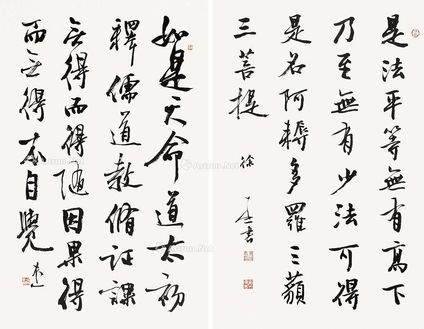 是法平等無有高下
乃至無有少法可得
是名阿耨多羅三藐
三菩提
徐 書
如是天命道太初
釋儒道教脩证課
無得而得隨因果得
而無得 自覺